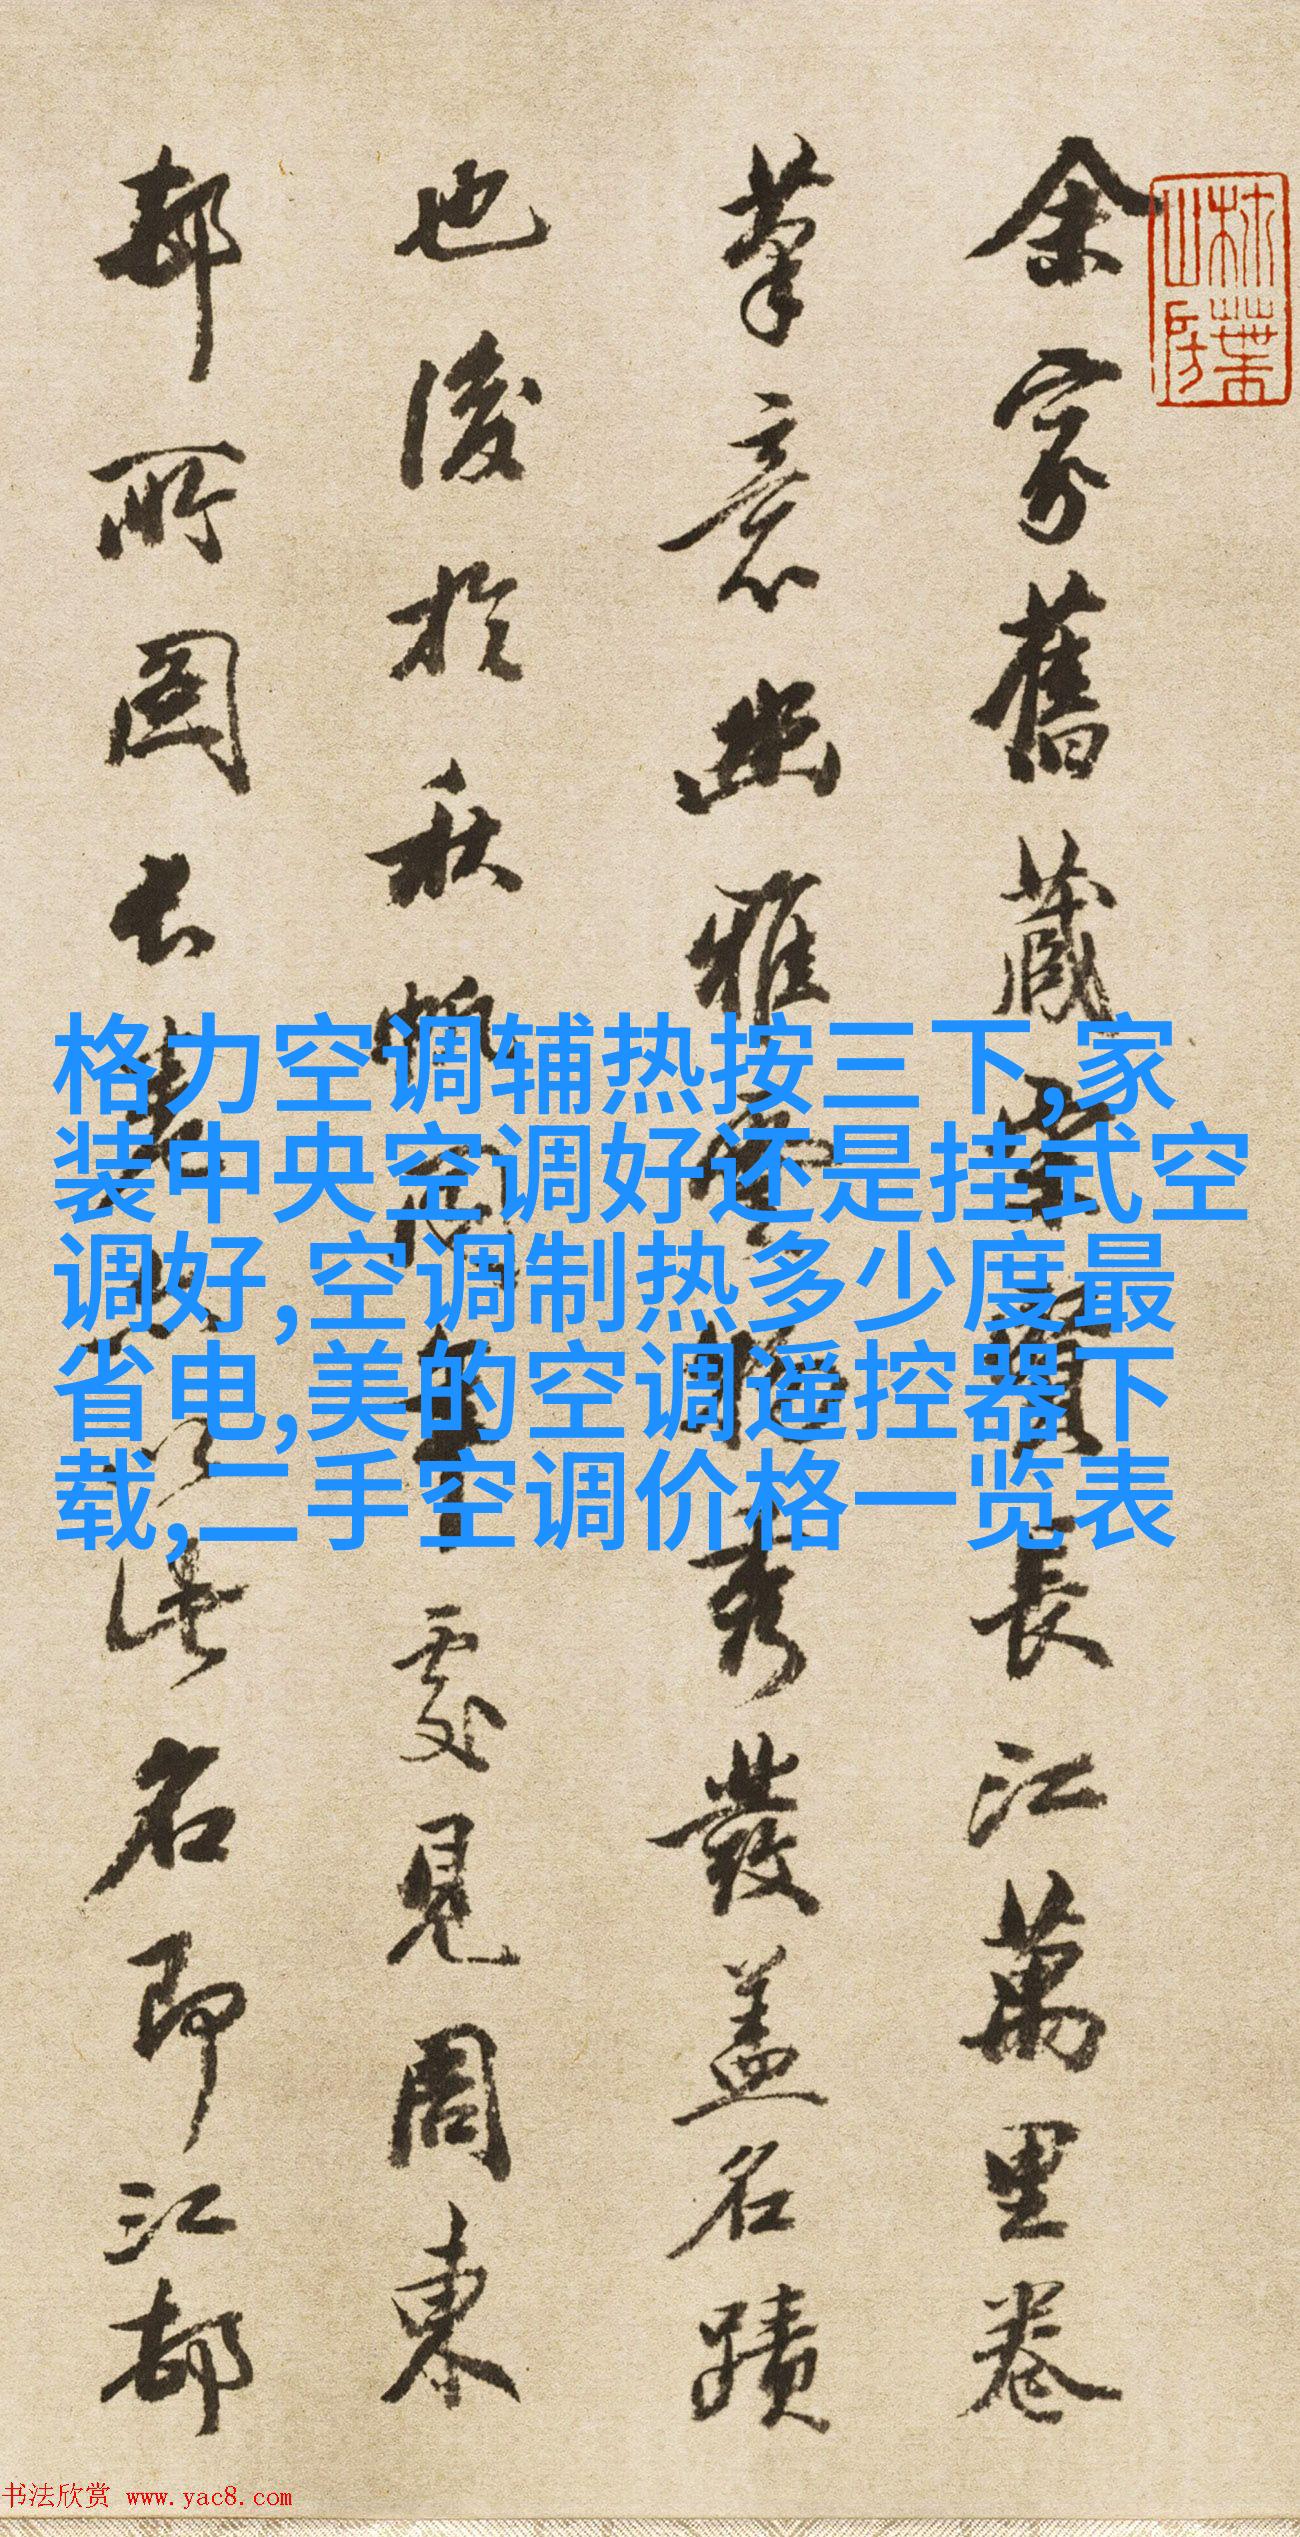 格力空调辅热按三下,家
装中央空调好还是挂式空
调好,空调制热多少度最
省电,美的空调遥控器下
载,二手空调价格一览表
余家舊藏賢長江萬里卷
筆意幽雅秀發盖名蹟
也後於秋處見周東
邨所图長以此名即江都
书法欣赏 www.yac8.com